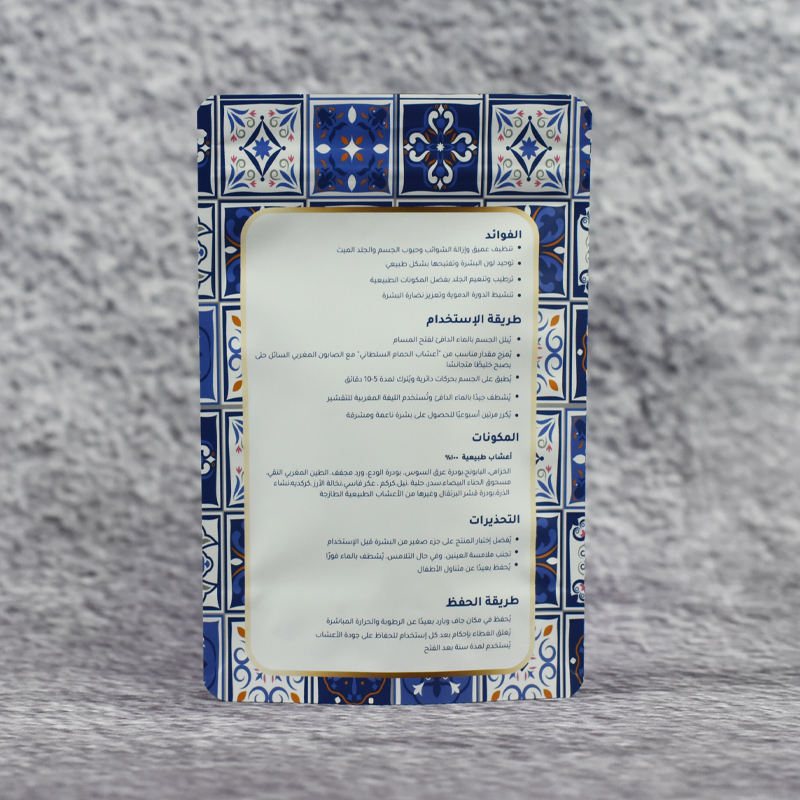 الفوائد
• تنظيف عميق وإزالة الشوائب وحبوب الجسم والجلد الميت
• توحيد لون البشرة وتفتيحها بشكل طبيعي
• ترطيب وتنعيم الجلد بفضل المكونات الطبيعية
• تنشيط الدورة الدموية وتعزيز نضارة البشرة
طريقة الإستخدام
• يُبلل الجسم بالماء الدافئ لفتح المسام
• يُمزج مقدار مناسب من "أعشاب الحمام السلطاني" مع الصابون المغربي السائل حتى
يصبح خليطًا متجانسًا
• يُطبق على الجسم بحركات دائرية ويُترك لمدة 5-10 دقائق
• يُشطف جيدًا بالماء الدافئ وتُستخدم الليفة المغربية للتقشير
• يُكرر مرتين أسبوعيًا للحصول على بشرة ناعمة ومشرقة
المكونات
أعشاب طبيعية ١٠٠%
الخزامى، البابونج،بودرة عرق السوس، بودرة الودع، ورد مجفف، الطين المغربي النقي،
مسحوق الحناء البيضاء،سدر، حلبة ،نيل،كركم ، عكر فاسي،نخالة الأرز ،كركديه،نشاء
الذرة،بودرة قشر البرتقال وغيرها من الأعشاب الطبيعية الطازجة
التحذيرات
• يُفضل إختبار المنتج على جزء صغير من البشرة قبل الإستخدام
• تجنب ملامسة العينين، وفي حال التلامس، يُشطف بالماء فورًا
• يُحفظ بعيدًا عن متناول الأطفال
طريقة الحفظ
يُحفظ في مكان جاف وبارد بعيدًا عن الرطوبة والحرارة المباشرة
يُغلق الغطاء بإحكام بعد كل إستخدام للحفاظ على جودة الأعشاب
يُستخدم لمدة سنة بعد الفتح